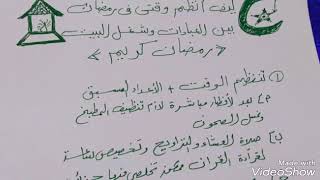 كيف أنظم وقتي في رمضان
بين العبادات وشغل البيت
« رمضان كريم »
① تنظيم الوقت + الأعداد المسبق
بعد الأفطار مباشرة لازم تنظيف المطبخ
وغسل الصحون
صلاة العشاء والتراويح وتخصيص
لقراءة القرآن ممكن تخلصي فيها
Made with
VideoShow